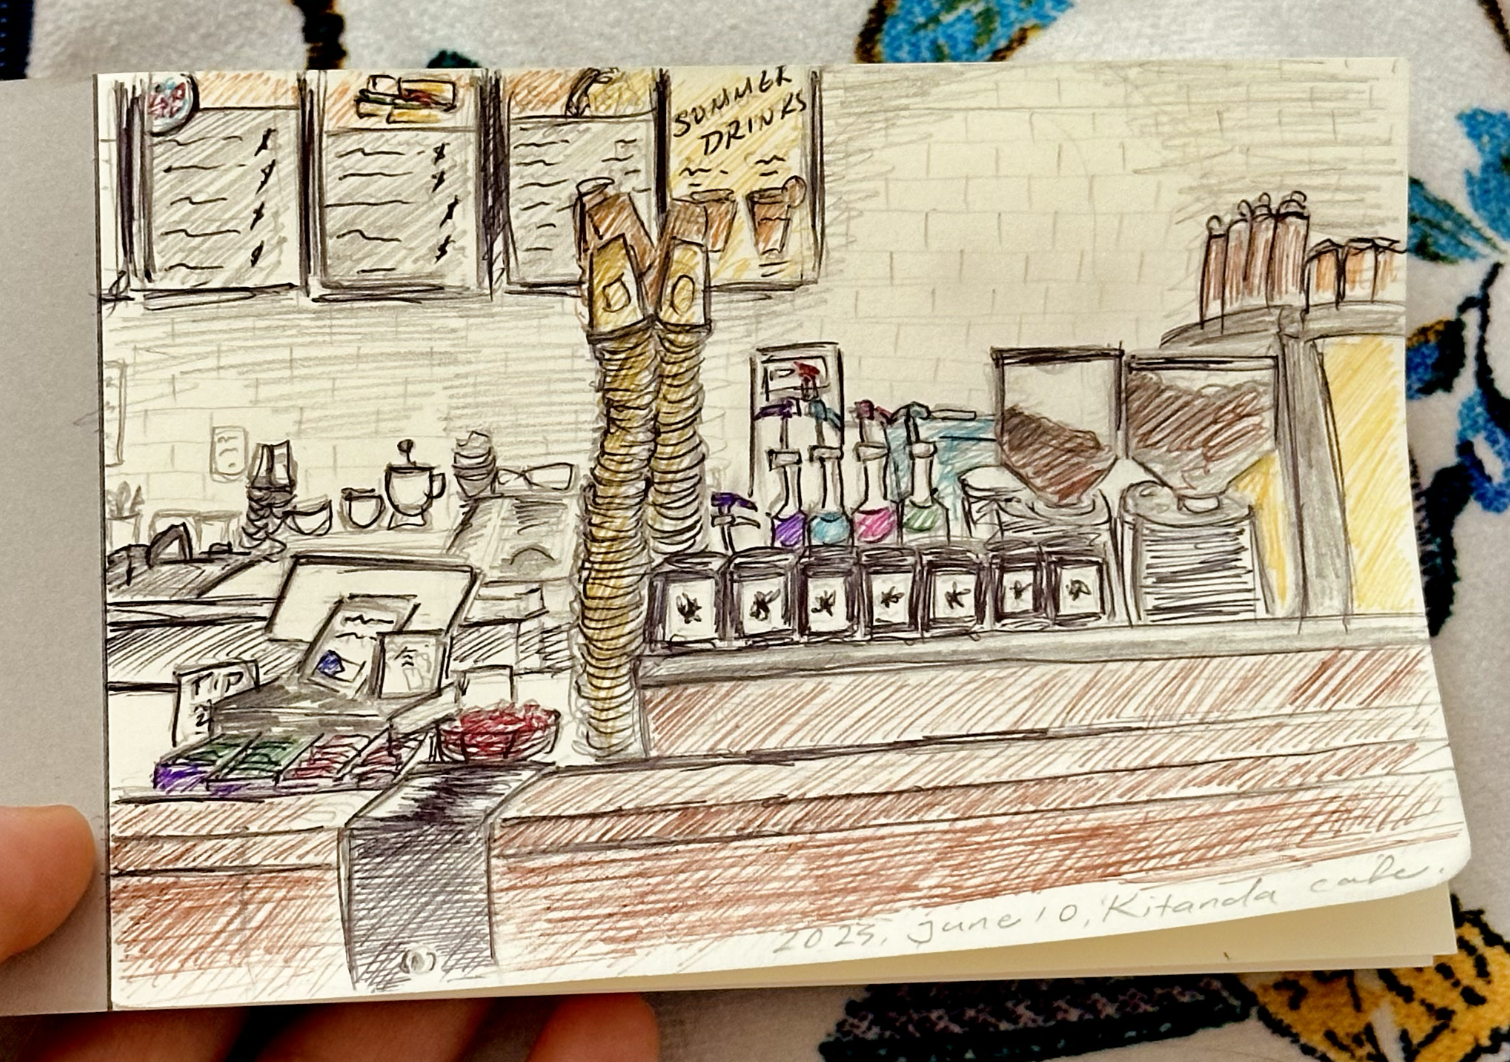 SUMMER
DRINKS
$
$
$
$
$
$
$
$
TIP
2025, june 10, Kitanda cafe.